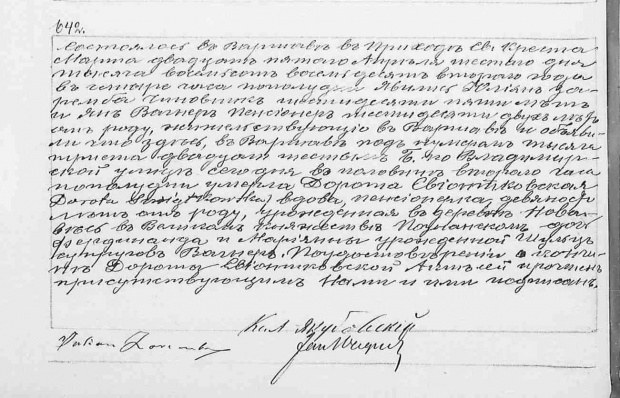 642.
Состоялось въ Варшавѣ въ Приходѣ Св: Креста
Марта двадцать пятаго Апрѣля шестого дня
тысяча восемьсотъ восемьдесятъ втораго года
въ четыре часа пополудни. Явились Юліянъ За-
ремба Чиновникъ шестидесяти пяти лѣтъ
и Янъ Вагнеръ Пенсіонеръ шестидесяти двухъ лѣтъ
отъ роду, жительствующіе въ Варшавѣ и объяви-
ли что здѣсь, въ Варшавѣ подъ нумеромъ тысяча
триста двадцать шестымъ по Владимір-
ской улицѣ сего дня въ половинѣ втораго часа
пополудни умерла Дорота Свіонтковская
(Dorota) вдова, пенсіонерка, девяносто
лѣтъ отъ роду, урожденная въ деревнѣ Нова-
вѣсь въ Великомъ Княжествѣ Познанскомъ дочь
Фердинанда и Маріянны урожденной Шульцъ
супруговъ Вагнеръ. По удостовѣреніи о кончи-
нѣ Дороты Свіонтковской Актъ сей прочтенъ
присутствующимъ Нами и ими подписанъ.
Jan Wagner